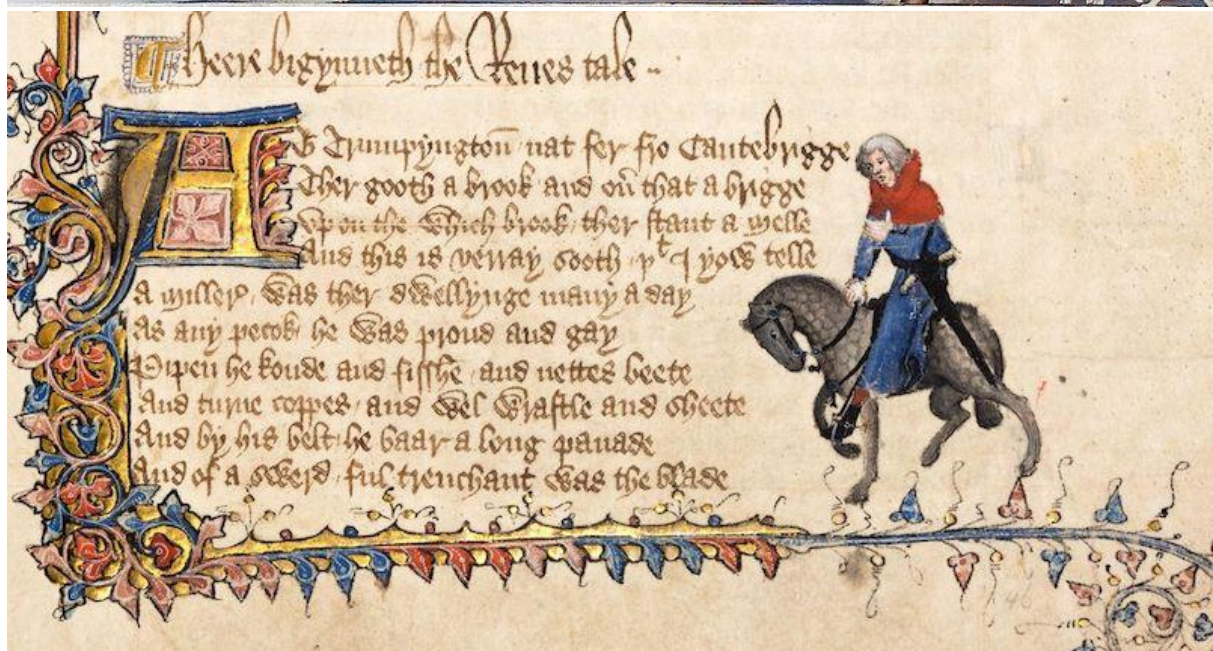 Heere bigynneth the Reues tale
At Trumpyngton̄ nat fer fro Cantebrigge
Ther gooth a brook and ou̅ that a brigge
Vpon the which brook ther stant a Melle
And this is verray sooth / yͭ I yow telle
A Millerꝭ was ther dwellynge many a day
As any pecok he was proud and gay
Pipen he koude and fisshe / and nettes beete
And turne coppes / and wel wrastle and sheete
And by his belt / he baar a long panade
And of a swerd / ful trenchant was the blade